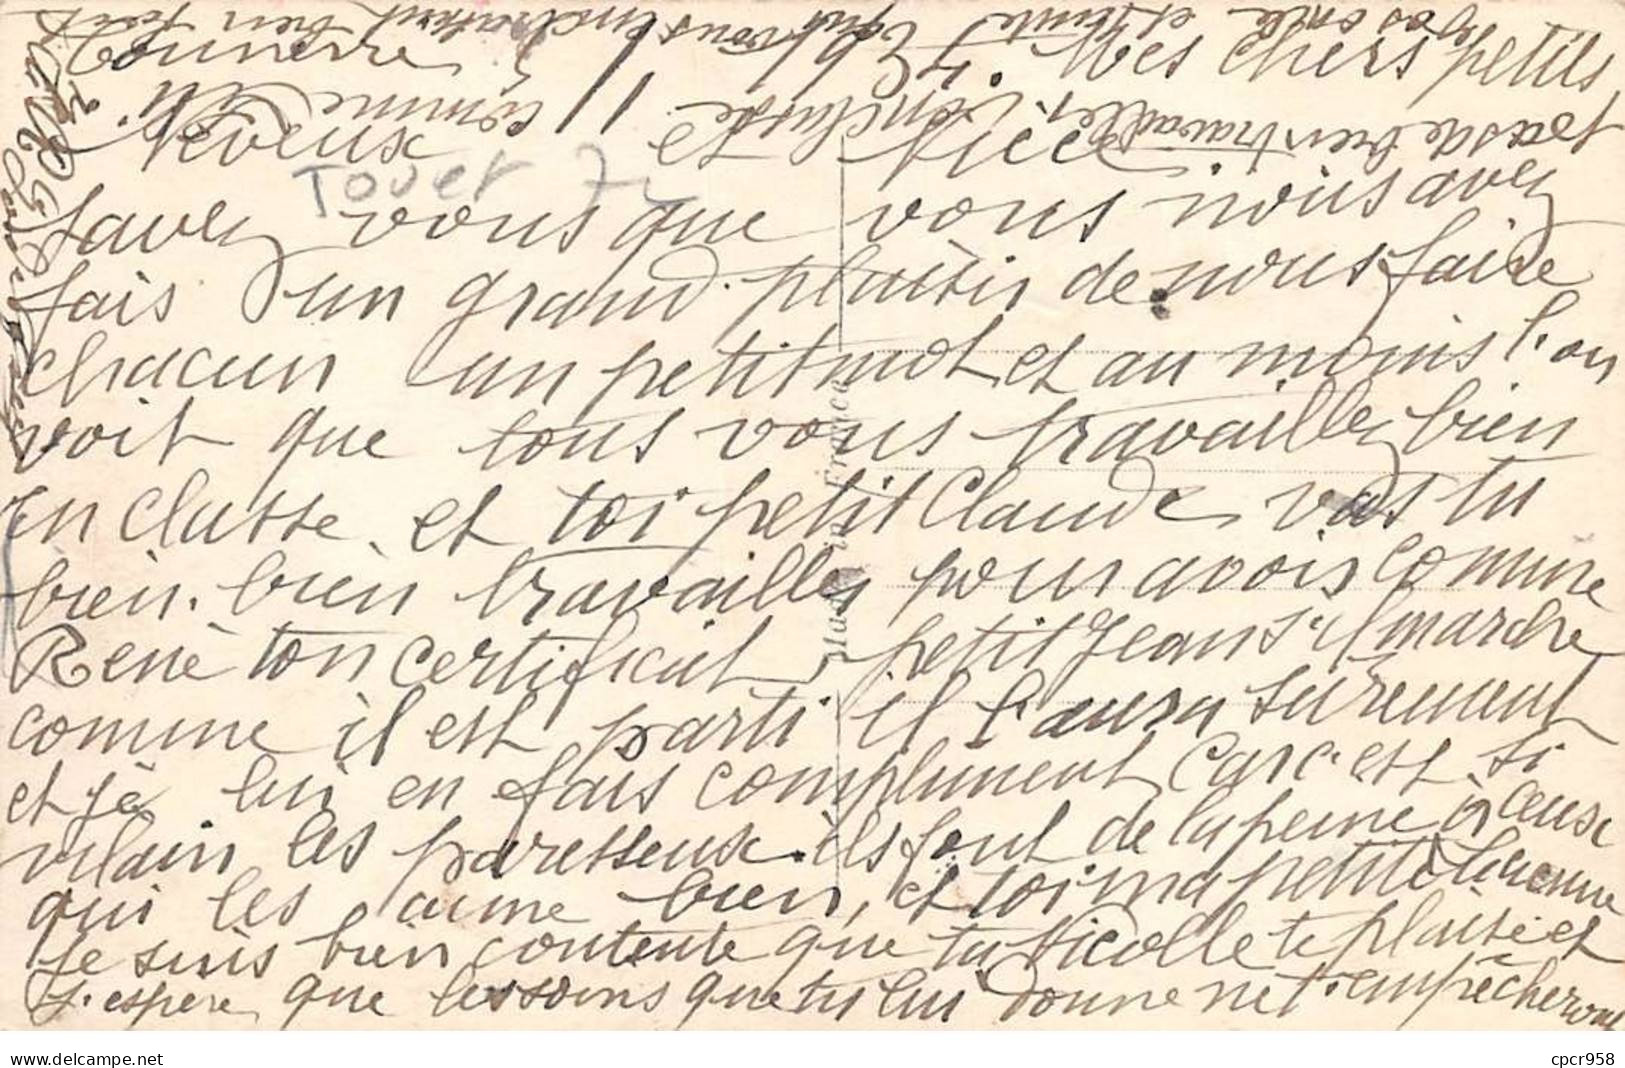 Mes chers petits
Neveux et Nièce
Savez vous que vous nous avez
fais un grand plaisir de nous faire
chacun un petit mot et au moins l'on
voit que tous vous travaillez bien
En classe. et toi petit Claude vas tu
bien. bien travailler pour avoir comme
René ton certificat petit Jean s'il marche
comme il est parti il l'aura surement
et je lui en fais compliment car c'est si
vilain les paresseux. ils font de la peine à ceux
qui les aime bien, et toi ma petite
Je suis bien contente que ta Nicolle te plaise et
J'espère que les soins que tu lui donne ne t'empêcheront
pas de bien travailler en classe
comme
bien fort
Touer 72
Made in France
cpcr958